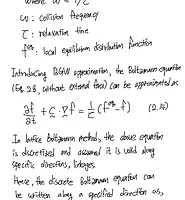 where ω = 1/τ
ω : collision frequency
τ : relaxation time
f^eq : local equilibrium distribution function
Introducing BGKW approximation, the Boltzmann equation
(Eq. 2.8, without external force) can be approximated as
∂f/∂t + c · ∇f = 1/τ (f^eq - f) (2.14)
In lattice Boltzmann method, the above equation
is discretized and assumed it is valid along
specific directions, linkages.
Hence, the discrete Boltzmann equation can
be written along a specified direction as,